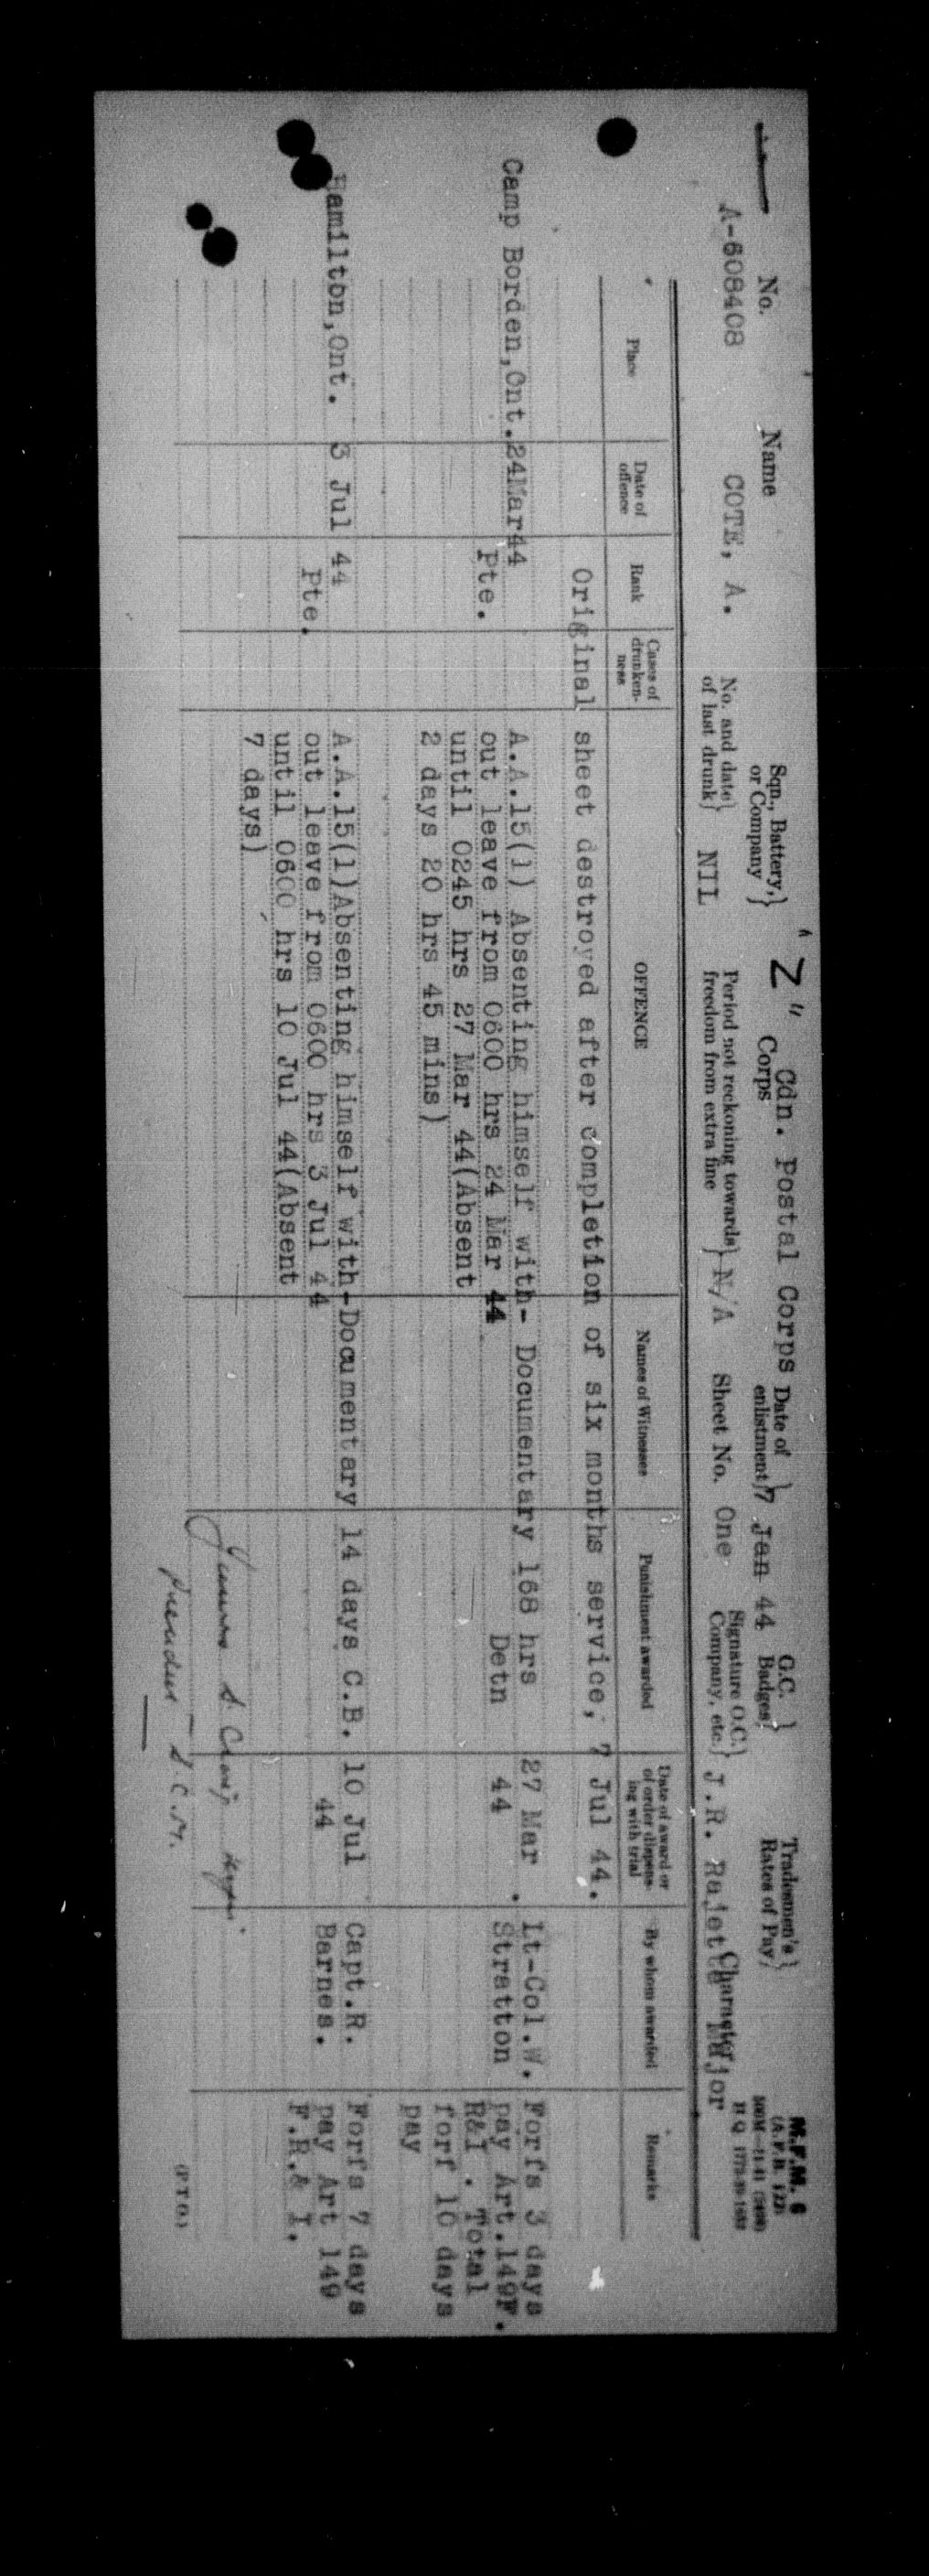 M.F.M. 6
(A.F.B. 122)
No. Name Sqn., Battery, or Company "Z" Corps Cdn. Postal Corps Date of enlistment 7 Jan 44 G.C. Badges Tradesmen's Rates of Pay
A-608408 COTE, A. No. and date of last drunk NIL Period not reckoning towards freedom from extra fine N/A Sheet No. One Signature O.C. Company, etc. J.R. Major Character
Place Date of offence Rank Cases of drunkenness OFFENCE Names of Witnesses Punishment awarded Date of award or of order dispensing with trial By whom awarded Remarks
Original sheet destroyed after completion of six months service, 7 Jul 44.
Camp Borden,Ont.24Mar44 A.A.15(1) Absenting himself with- Documentary 168 hrs 27 Mar Lt-Col.W. Forfs 3 days
Pte. out leave from 0600 hrs 24 Mar 44 Detn 44 Stratton pay Art.149F.
until 0245 hrs 27 Mar 44(Absent R&I. Total
2 days 20 hrs 45 mins) forf 10 days
pay
Hamilton,Ont. 3 Jul 44 A.A.15(1)Absenting himself with-Documentary 14 days C.B. 10 Jul Capt.R. Forfs 7 days
Pte. out leave from 0600 hrs 3 Jul 44 44 Barnes. pay Art 149
until 0600 hrs 10 Jul 44(Absent F.R.& I.
7 days)
S.C.M.
(P.T.O.)